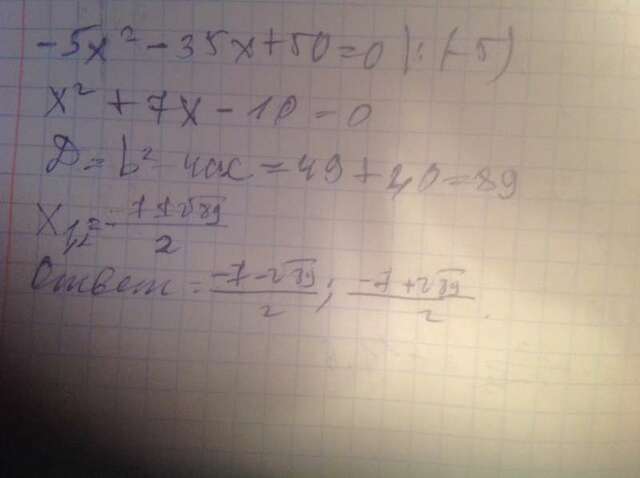 -5x² - 35x + 50 = 0 |: (-5)
x² + 7x - 10 = 0
D = b² - 4ac = 49 + 40 = 89
x₁,₂ = (-7 ± √89)/2
Ответ: (-7 - √89)/2 ; (-7 + √89)/2.